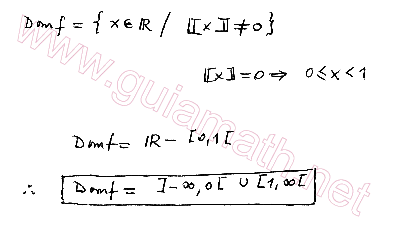 Domf = { x ∈ ℝ / ⟦x⟧ ≠ 0 }
⟦x⟧ = 0 ⇒ 0 ≤ x < 1
Domf = ℝ - [0,1[
∴ Domf = ]-∞, 0[ ∪ [1, ∞[
www.guiamath.net